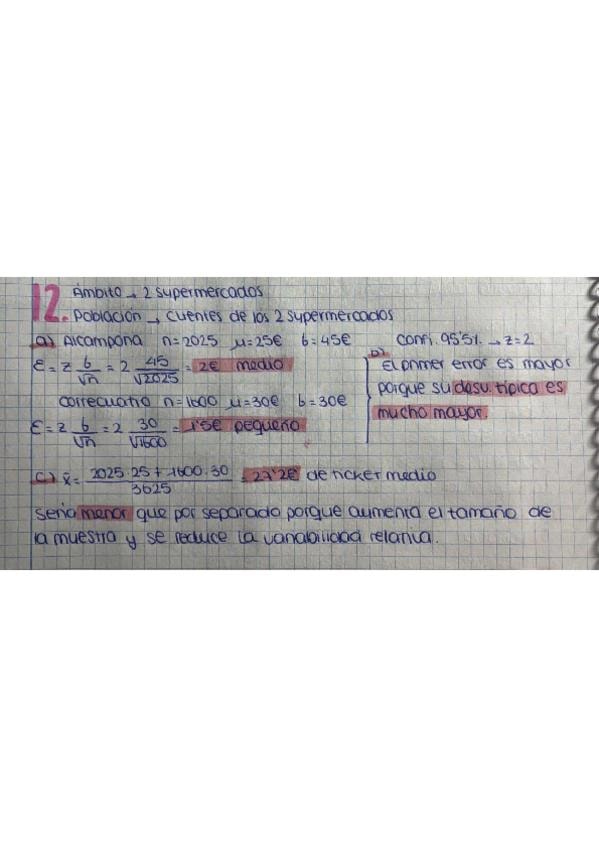 12. Ámbito → 2 supermercados
Población → clientes de los 2 supermercados
a) Alcampona n=2025 μ=25€ σ=45€ conf. 95'5%. → z=2
ε = z σ/√n = 2 45/√2025 = 2€ medio
correcuatro n=1600 μ=30€ σ=30€
ε = z σ/√n = 2 30/√1600 = 1'5€ pequeño
b) El primer error es mayor
porque su desv. típica es
mucho mayor.
c) x̄ = 2025·25 + 1600·30/3625 = 27'2€ de ticket medio
sería menor que por separado porque aumenta el tamaño de
la muestra y se reduce la variabilidad relativa.